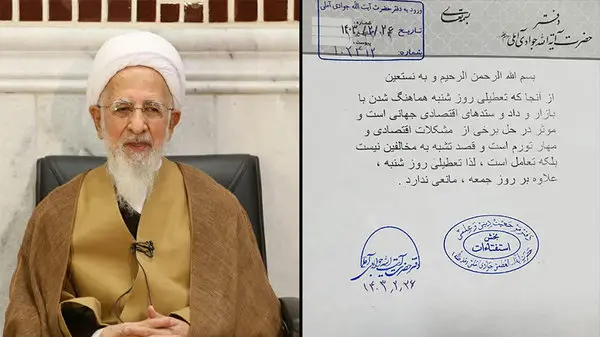 ورود به دفتر حضرت آیت الله جوادی آملی
تاریخ ۱۴۰۳/۲/۲۶
شماره: ۱۰۲۳۱۲
بسمه تعالی
دفتر
حضرت آیة الله جوادی آملی
بسم الله الرحمن الرحیم و به نستعین
از آنجا که تعطیلی روز شنبه هماهنگ شدن با
بازار و داد و ستدهای اقتصادی جهانی است و
موثر در حل برخی از مشکلات اقتصادی و
مهار تورم است و قصد تشبه به مخالفین نیست
بلکه تعامل است ، لذا تعطیلی روز شنبه ،
علاوه بر روز جمعه ، مانعی ندارد .
بخش
استفتاءات
دفتر حضرت آیت الله جوادی آملی
۱۴۰۳,۲,۲۶